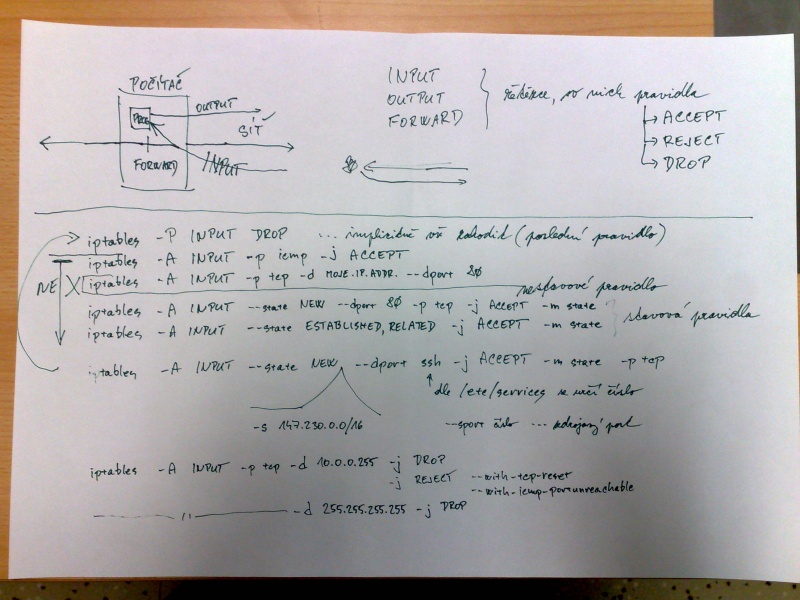 POČÍTAČ
OUTPUT
PROG
SÍŤ
FORWARD
INPUT
INPUT
OUTPUT
FORWARD
řetězce, v nich pravidla
ACCEPT
REJECT
DROP
80
iptables -P INPUT DROP ... implicitně vš zahodit (poslední pravidlo)
iptables -A INPUT -p icmp -j ACCEPT
NE
iptables -A INPUT -p tcp -d MOJE.IP.ADDR. --dport 80
nestavové pravidlo
iptables -A INPUT --state NEW --dport 80 -p tcp -j ACCEPT -m state
iptables -A INPUT --state ESTABLISHED,RELATED -j ACCEPT -m state
stavová pravidla
iptables -A INPUT --state NEW --dport ssh -j ACCEPT -m state -p tcp
dle /etc/services se určí číslo
-s 147.230.0.0/16
--sport číslo ... zdrojový port
iptables -A INPUT -p tcp -d 10.0.0.255 -j DROP
-j REJECT --with-tcp-reset
--with-icmp-portunreachable
-d 255.255.255.255 -j DROP